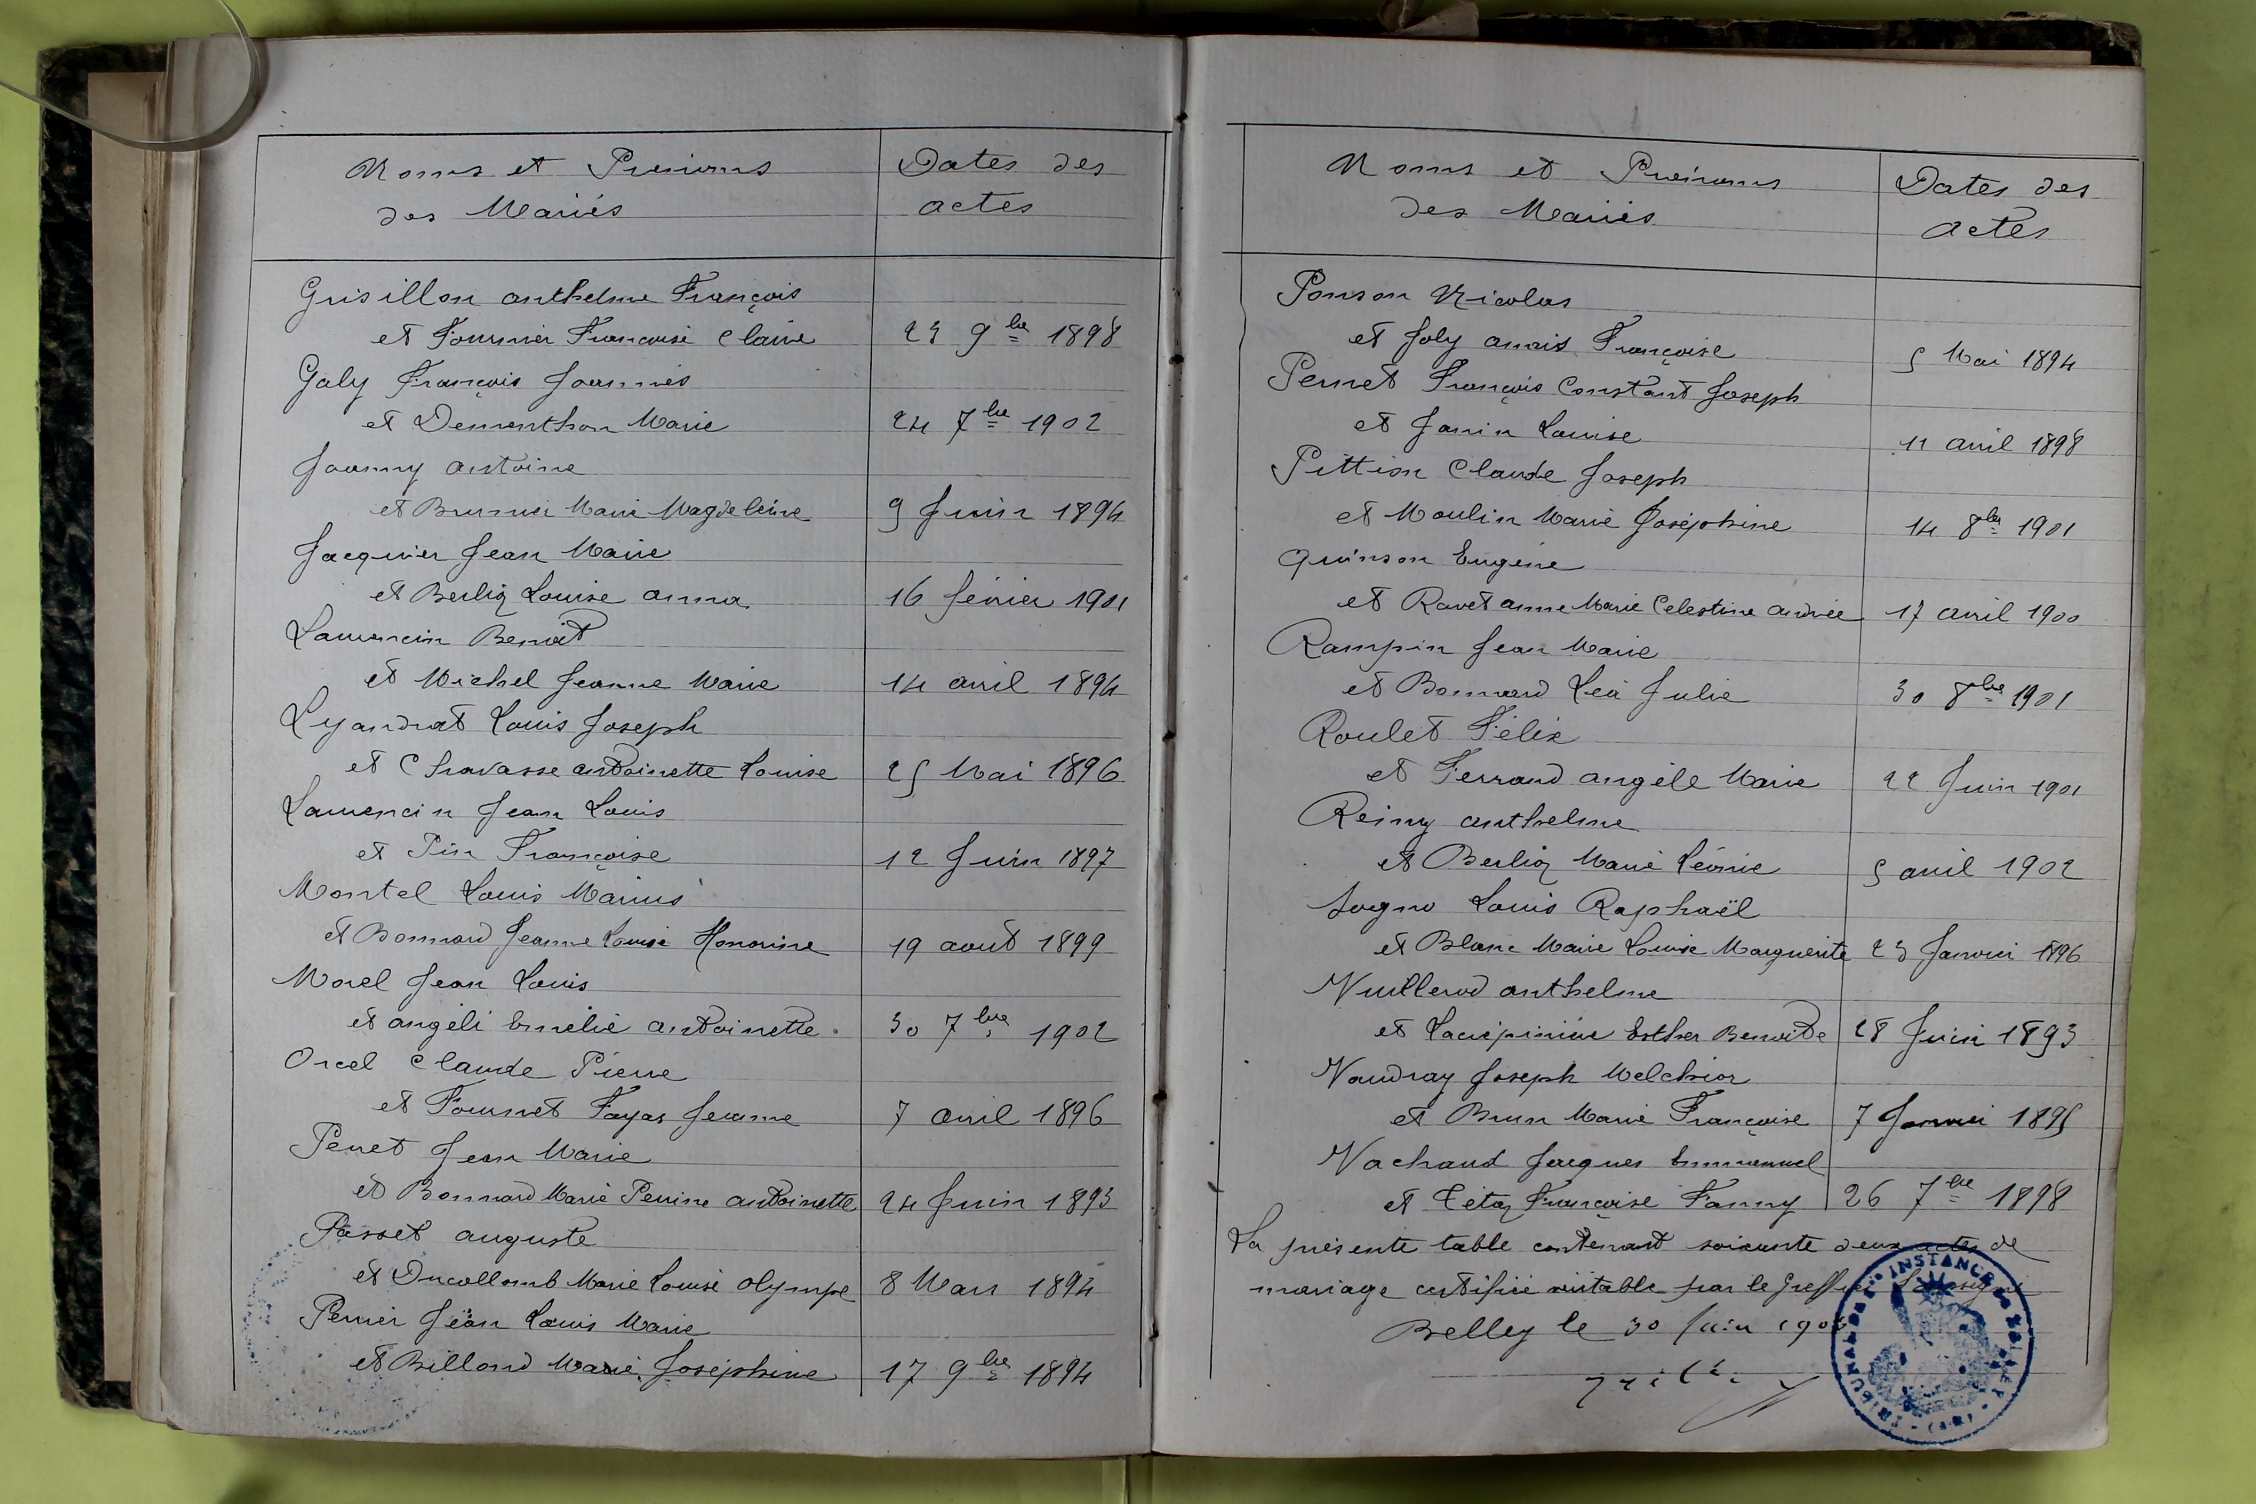 Noms et Prénoms
des Mariés
Dates des
actes
Grisillon anthelme François
et Fournier Francoise Claire 23 9bre 1898
Galy François Joannès
et Dementhon Marie 24 7bre 1902
Joanny antoine
et Brunier Marie Magdeleine 9 Juin 1894
Jacquier Jean Marie
et Berlioz Louise anna 16 février 1901
Lamercin Benoit
et Michel Jeanne Marie 14 avril 1894
Lyandrat Louis Joseph
et Chavasse antoinette Louise 25 Mai 1896
Lamercin Jean Louis
et Pin Françoise 12 Juin 1897
Montel Louis Marius
et Bonnard Jeanne Louise Honorine 19 août 1899
Morel Jean Louis
et angéli Emélie antoinette 30 7bre 1902
Orcel Claude Pierre
et Fournet Fayas Jeanne 7 avril 1896
Perret Jean Marie
et Bonnard Marie Perrine antoinette 24 Juin 1893
Passet auguste
et Ducollomb Marie Louise olympe 8 Mars 1894
Perrier Jean Louis Marie
et Billand Marie Joséphine 17 9bre 1894
Noms et Prénoms
des Mariés
Dates des
actes
Ponson Nicolas
et Joly anais Françoise 5 Mai 1894
Pernet François Constant Joseph
et Janin Louise 11 avril 1898
Pittion Claude Joseph
et Moulin Marie Joséphine 14 8bre 1901
Quinson Eugène
et Ravet anne Marie Celestine andrée 17 avril 1900
Rampin Jean Marie
et Bonnard Léa Julie 30 8bre 1901
Roulet Félix
et Ferrand angèle Marie 22 Juin 1901
Reimy anthelme
et Berlioz Marie Léonie 5 avril 1902
Sogno Louis Raphaël
et Blanc Marie Louise Marguerite 23 Janvier 1896
Vuillerod anthelme
et Lacrépinière Esther Benoite 28 Juin 1893
Vaudray Joseph Melchior
et Brun Marie Françoise 7 Janvier 1895
Vachaud Jacques Emmanuel
et Tétaz Françoise Fanny 26 7bre 1898
La présente table contenant soixante deux actes de
mariage certifiée véritable par le Greffier Soussigné
Belley le 30 Juin
TRIBUNAL DE 1re INSTANCE DE BELLEY (AIN)